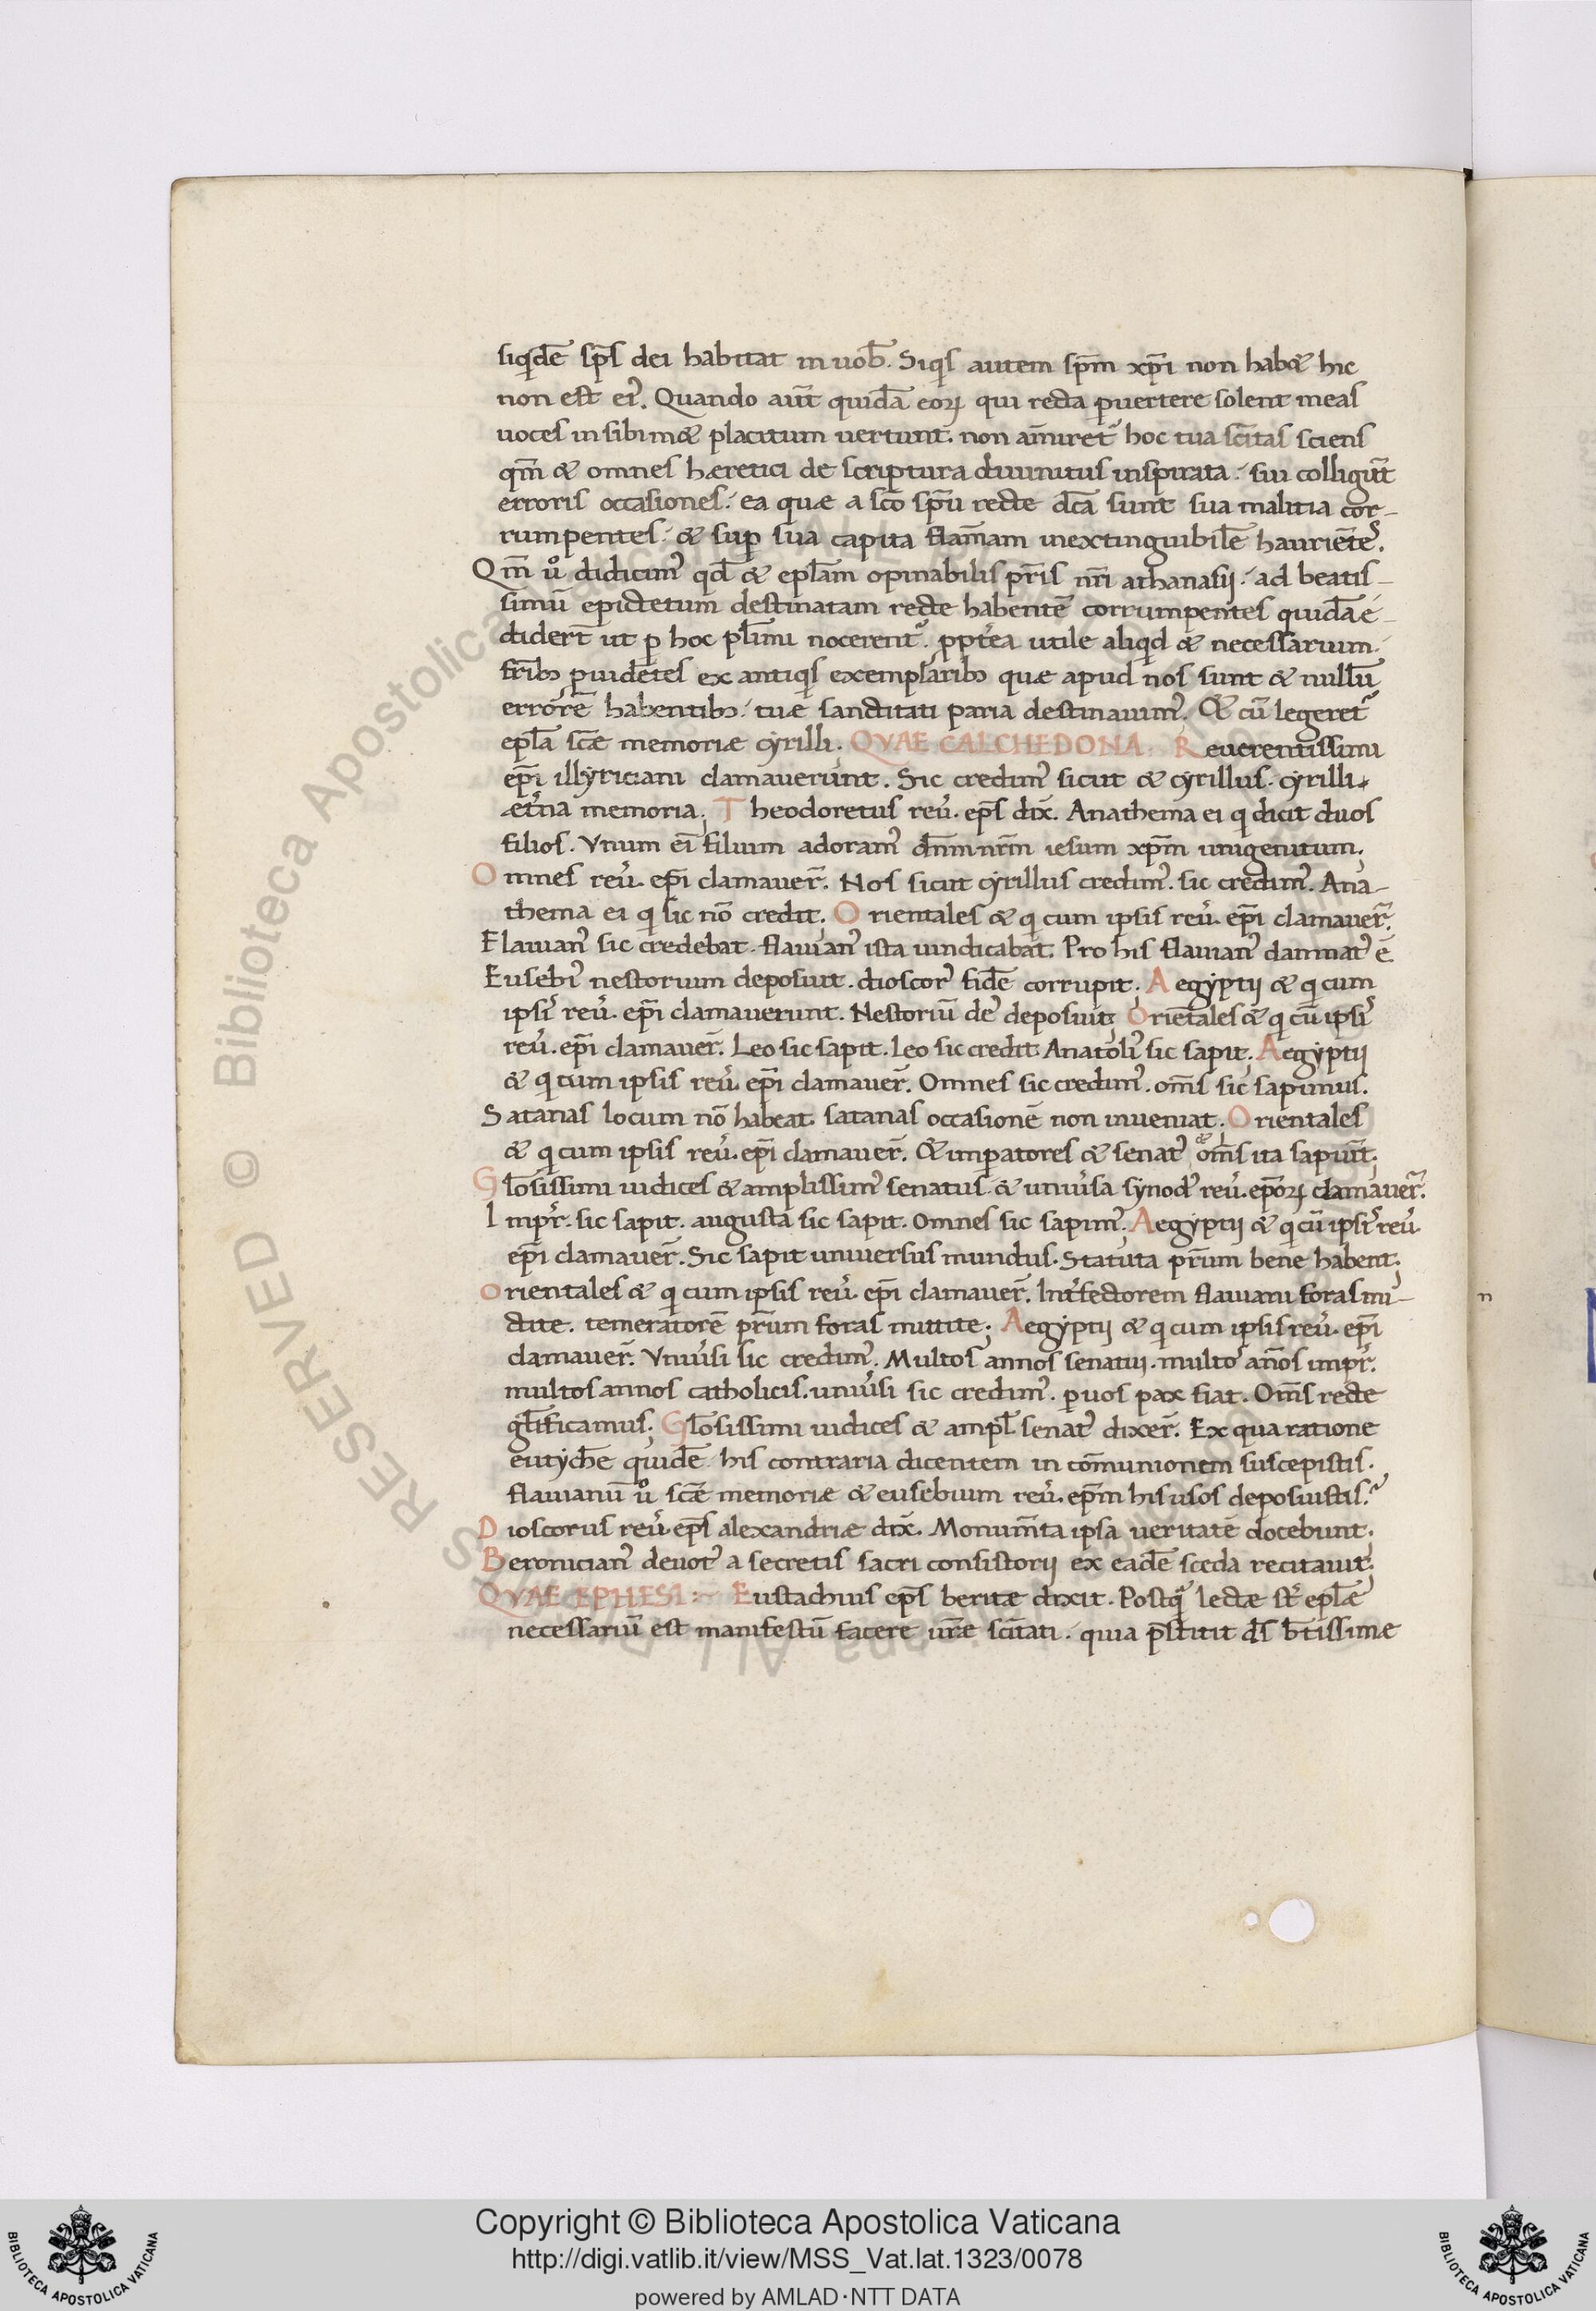 siqidē sp̄s dei habitat in uob̄. Siqis autem sp̄m xp̄i non hab& hic
non est ei᾽. Quando aut̄ quidā eoꝝ qui recta ꝑuertere solent meas
uoces in sibim& placitum uertunt. non am̄iret᾽ hoc tua sc̄itas sciens
qm̄ & omnes hæretici de scriptura diuinitus inspirata. sui colligūt
erroris occasiones. ea quæ a sc̄o sp̄u recte dc̄a sunt sua malitia cor-
rumpentes. & suꝑ sua capita flam̄am inextinguibilē haurientē᾽.
Qm̄ u° didicim᾽ qd̄ & epl̄am opinabilis pr̄is nr̄i athanasij. ad beatis-
simū epictetum destinatam recte habentē corrumpentes quidā e-
didert̄ ut ꝑ hoc pl̄imi nocerent᾽. ꝓpt᾽ea utile aliqd & necessarium
fr̄ibꝫ ꝓuidētes ex antiqis exemplaribꝫ quæ apud nos sunt & nullū
errorē habentibꝫ. tuæ sanctitati paria destinauim᾽. & cū legeret᾽
epl̄a sc̄æ memoriæ cyrilli. QVAE CALCHEDONA. Reuerentissimi
ep̄i illyriciani clamauerunt. Sic credim᾽ sicut & cyrillus. cyrilli
æt᾽na memoria. Theodoretus reu᾽. ep̄s dix̄. Anathema ei q dicit duos
filios. Vnum ei̅ filium adoram᾽ dn̄m nr̄m iesum xp̄m unigenitum.
Omnes reu᾽. ep̄i clamauer̄. Nos sicut cyrillus credim᾽. sic credim᾽. Ana-
thema ei q sic nō credit. Orientales & q cum ipsis reu᾽. ep̄i clamauer̄.
Flauian᾽ sic credebat. flauian᾽ ista uindicabat. Pro his flauian᾽ damnat᾽ ē.
Eusebi᾽ nestorium deposuit. dioscor᾽ fidē corrupit. Aegyptij & q cum
ipsi᾽ reu᾽. ep̄i clamauerunt. Nestoriū de᾽ deposuit. Orientales & q cū ipsi᾽
reu᾽. ep̄i clamauer̄. Leo sic sapit. leo sic credit. Anatoli᾽ sic sapit. Aegyptij
& q cum ipsis reu᾽. ep̄i clamauer̄. Omnes sic credim᾽. om̄s sic sapimus.
Satanas locum nō habeat. satanas occasionē non inueniat. Orientales
& q cum ipsis reu᾽. ep̄i clamauer̄. & imꝑatores & senat᾽ & om̄s ita sapiūt.
Gl̄osissimi iudices & amplissim᾽ senatus & uniu᾽sa synod᾽ reu᾽. ep̄oꝝ clamauer̄.
Impr᾽. sic sapit. augusta sic sapit. Omnes sic sapim᾽. Aegyptij & q cū ipsi᾽ reu᾽
ep̄i clamauer̄. Sic sapit uniuersus mundus. Statuta pr̄um bene habent.
Orientales & q cum ipsis reu᾽. ep̄i clamauer̄. Int᾽fectorem flauiani foras mi-
ctite. temeratorē pr̄um foras mittite. Aegyptij & q cum ipsis reu᾽. ep̄i
clamauer̄. Vniu᾽si sic credim᾽. Multos annos senatui. multo᾽ an̄os impr᾽.
multos annos catholicis. uniu᾽si sic credim᾽. ꝑ uos pax fiat. Om̄s recte
gl̄ificamus. Gl̄osissimi iudices & ampl̄ senat᾽ dixer̄. Ex qua ratione
eutychē quidē his contraria dicentem in com̄unionem suscepistis.
flauianū u° sc̄æ memoriæ & eusebium reu᾽. ep̄m his usos deposuistis.
Dioscorus reu᾽. ep̄s alexandriæ dix̄. Monum̄ta ipsa ueritatē docebunt.
Beronician᾽ deuot᾽ a secretis sacri consistorij ex eadē sceda recitauit.
QVAE EPHESI:~ Eustachius ep̄s beritæ dixit. Postqā lectæ st᾽ epl̄æ
necessariū est manifestū facere ur̄æ sc̄itati. quia p̄stitit d̄s b̄tissimæ
Copyright © Biblioteca Apostolica Vaticana
http://digi.vatlib.it/view/MSS_Vat.lat.1323/0078
powered by AMLAD·NTT DATA